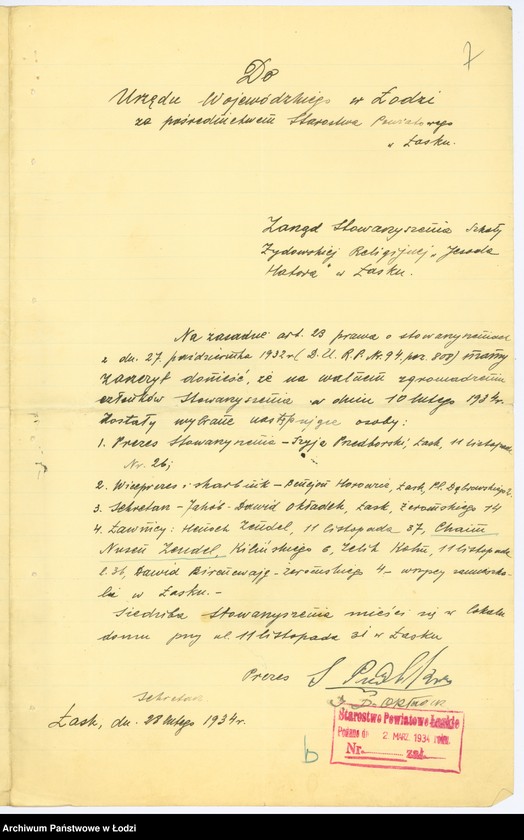 7
Do
Urzędu Wojewódzkiego w Łodzi
za pośrednictwem Starostwa Powiatowego
w Łasku.
Zarząd Stowarzyszenia Szkoły
Żydowskiej Religijnej „Jesoda
Hatora" w Łasku.
Na zasadzie art. 23 prawa o stowarzyszeniach
z dn. 27 października 1932 r. (D.U.R.P. Nr. 94. poz. 808) mamy
zaszczyt donieść, że na walnem zgromadzeniu
członków Stowarzyszenia w dniu 10 lutego 1934 r.
zostały wybrane następujące osoby:
1. Prezes Stowarzyszenia – Szyja Przedborski, Łask, 11 listopada
Nr. 26;
2. Wiceprezes i skarbnik – Horowicz, Łask, Pl. Dąbrowskiego
3. Sekretarz – Jakób-Dawid Okładek, Łask, Żeromskiego 14
4. Ławnicy: Henoch Zendel, 11 listopada 37, Chaim
Nusen Zendel, Kilińskiego 6, Zelik Kohn, 11 listopada
l. 36, Dawid Żeromskiego 4 – wszyscy zamieszka-
li w Łasku. –
Siedziba Stowarzyszenia mieści się w lokalu
domu przy ul. 11 listopada 31 w Łasku
Prezes
Sekretarz
Łask, dn. 28 lutego 1934 r.
Starostwo Powiatowe Łaskie
Podano dn. 2 MARZ. 1934 roku.
Nr. zał.
b
Archiwum Państwowe w Łodzi